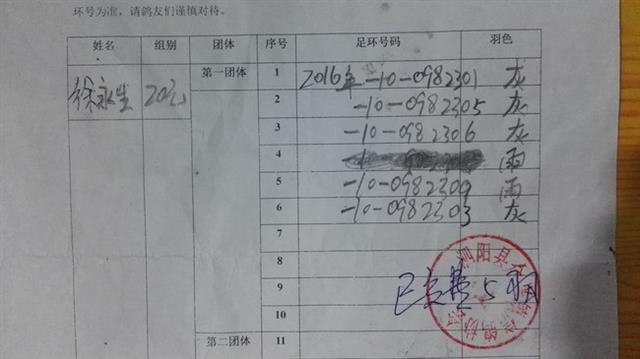 环号为准，请鸽友们谨慎对待。
姓名 组别 团体 序号 足环号码 羽色
徐永生 20元 第一团体 1 2016年-10-0982301 灰
2 -10-0982305 灰
3 -10-0982306 灰
4 雨
5 -10-0982309 雨
6 -10-0982303 灰
7
8
泗阳县
9 5羽
10
第二团体 11